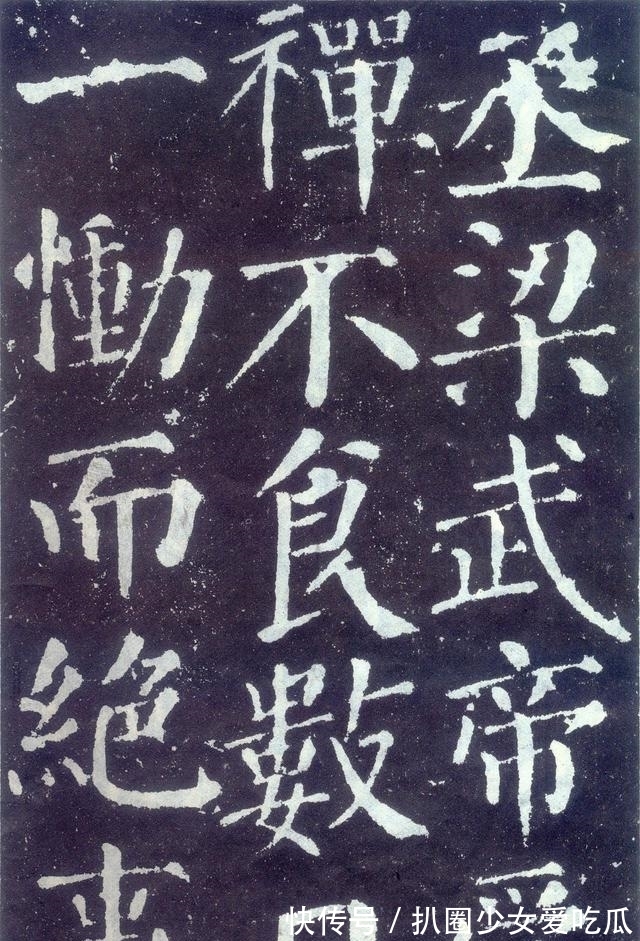 丞梁武帝受
禪不食數日
一慟而絕事
快传号 / 扒圈少女爱吃瓜